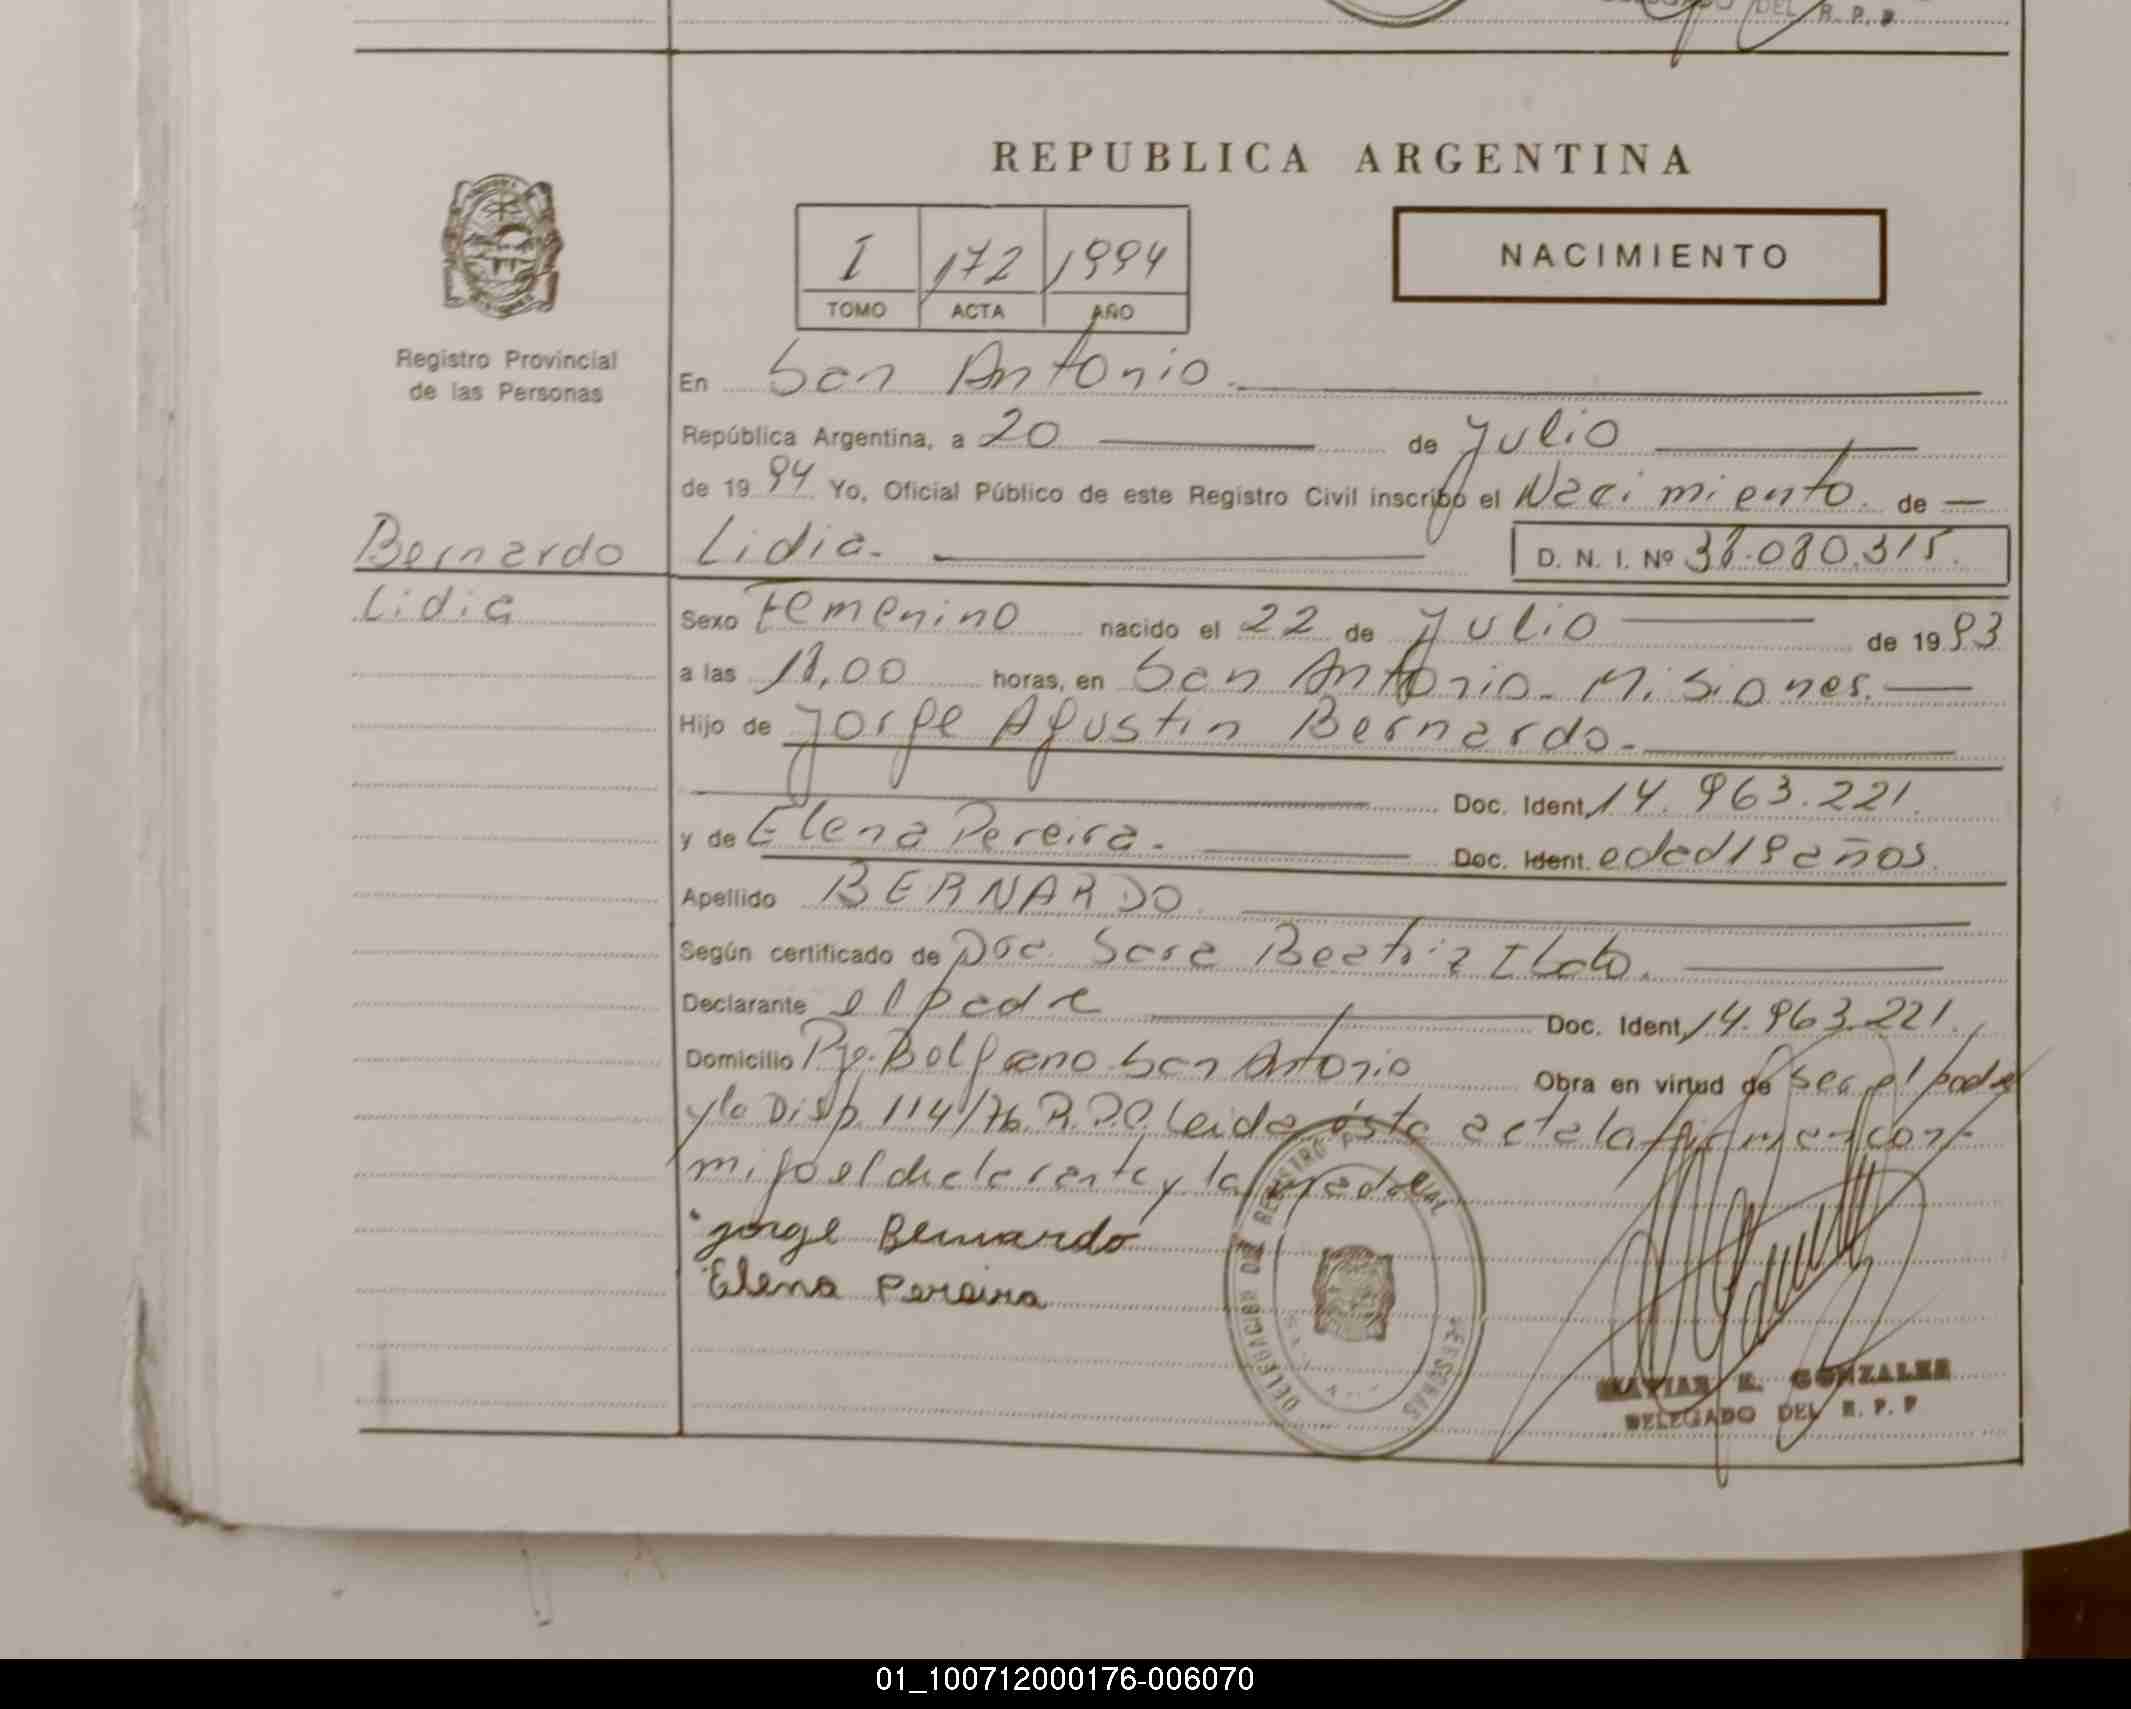 DEL R. P. P
REPUBLICA ARGENTINA
I 172 1994
TOMO ACTA AÑO
NACIMIENTO
Registro Provincial
de las Personas
En San Antonio.
República Argentina, a 20 de Julio
de 1994 Yo, Oficial Público de este Registro Civil inscribo el Nacimiento. de
Bernardo
Lidia
Lidia.
D. N. I. Nº 38.080.315.
Sexo Femenino nacido el 22 de Julio de 1993
a las 18,00 horas, en San Antonio. Misiones.
Hijo de Jorge Agustin Bernardo.
Doc. Ident. 14.963.221.
y de Elena Pereira. Doc. Ident. edad 19 años.
Apellido BERNARDO.
Según certificado de Doc. Sara Beatriz
Declarante el padre Doc. Ident. 14.963.221.
Domicilio Pje. Belgrano San Antonio Obra en virtud de ser el padre
y la Disp. 114/76. R.P.P. Leida ésta acta la firman con-
migo el declarante y la madre
Jorge Bernardo
Elena Pereira
DELEGACION DEL REGISTRO
PERSONAS
E. GONZALEZ
DELEGADO DEL R. P. P
01_100712000176-006070